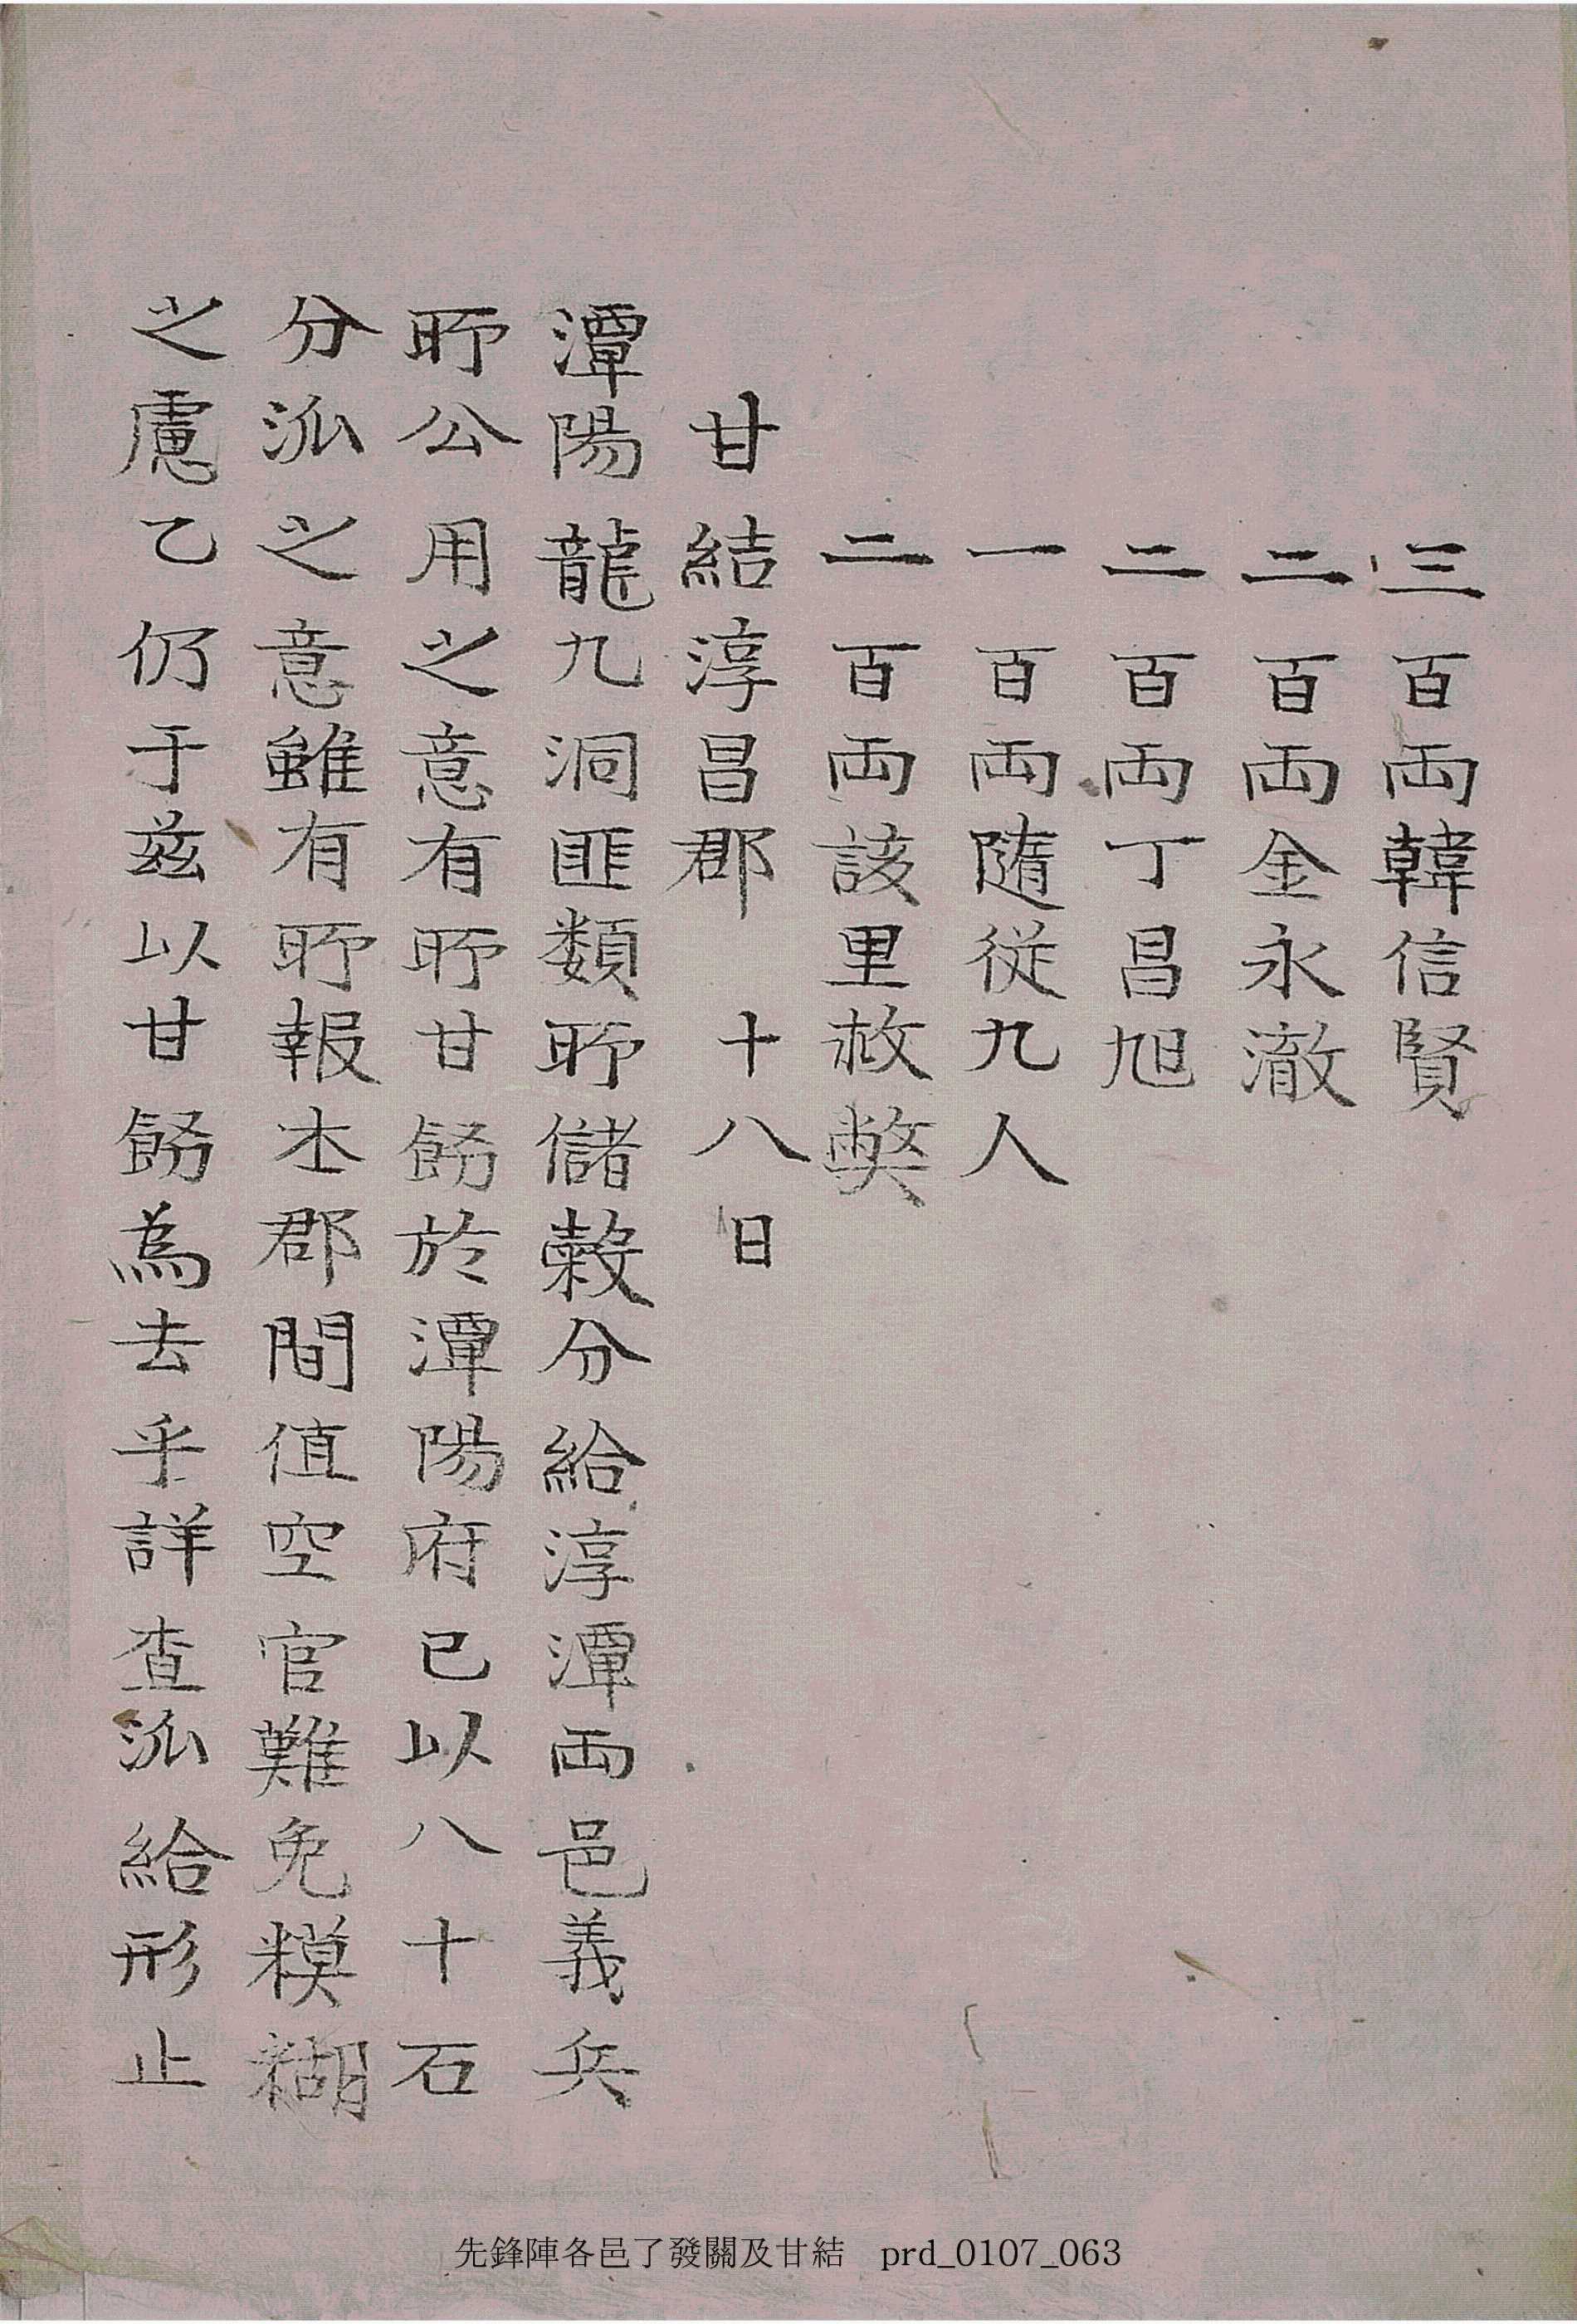 三百両韓信賢
二百両金永澈
二百両丁昌旭
一百両随従九人
二百両該里救獘
甘結淳昌郡　十八日
潭陽龍九洞匪類所儲穀分給淳潭両邑義兵
所公用之意有所甘飭於潭陽府已以八十石
分派之意雖有所報本郡間值空官難免糢糊
之慮乙仍于茲以甘飭為去乎詳查派給形止
先鋒陣各邑了發關及甘結　prd_0107_063